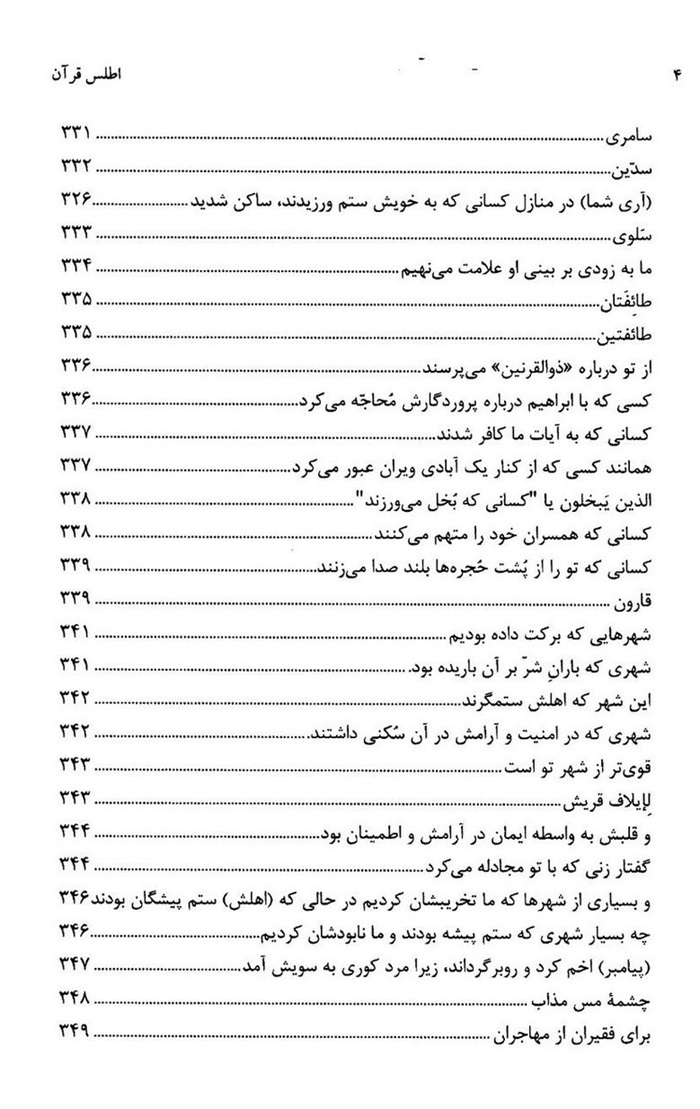 ۴ اطلس قرآن
سامری ۳۳۱
سدّین ۳۳۲
(آری شما) در منازل کسانی که به خویش ستم ورزیدند، ساکن شدید ۳۲۶
سَلوی ۳۳۳
ما به زودی بر بینی او علامت می‌نهیم ۳۳۴
طائِفَتان ۳۳۵
طائفتین ۳۳۵
از تو درباره «ذوالقرنین» می‌پرسند ۳۳۶
کسی که با ابراهیم درباره پروردگارش مُحاجّه می‌کرد ۳۳۶
کسانی که به آیات ما کافر شدند ۳۳۷
همانند کسی که از کنار یک آبادی ویران عبور می‌کرد ۳۳۷
الذین یَبخلون یا "کسانی که بُخل می‌ورزند" ۳۳۸
کسانی که همسران خود را متهم می‌کنند ۳۳۸
کسانی که تو را از پُشت حُجره‌ها بلند صدا می‌زنند ۳۳۹
قارون ۳۳۹
شهرهایی که برکت داده بودیم ۳۴۱
شهری که بارانِ شرّ بر آن باریده بود ۳۴۱
این شهر که اهلش ستمگرند ۳۴۲
شهری که در امنیت و آرامش در آن سُکنی داشتند ۳۴۲
قوی‌تر از شهر تو است ۳۴۳
لِإیلاف قریش ۳۴۳
و قلبش به واسطه ایمان در آرامش و اطمینان بود ۳۴۴
گفتار زنی که با تو مجادله می‌کرد ۳۴۴
و بسیاری از شهرها که ما تخریبشان کردیم در حالی که (اهلش) ستم پیشگان بودند ۳۴۶
چه بسیار شهری که ستم پیشه بودند و ما نابودشان کردیم ۳۴۶
(پیامبر) اخم کرد و روبرگرداند، زیرا مرد کوری به سویش آمد ۳۴۷
چشمهٔ مس مذاب ۳۴۸
برای فقیران از مهاجران ۳۴۹